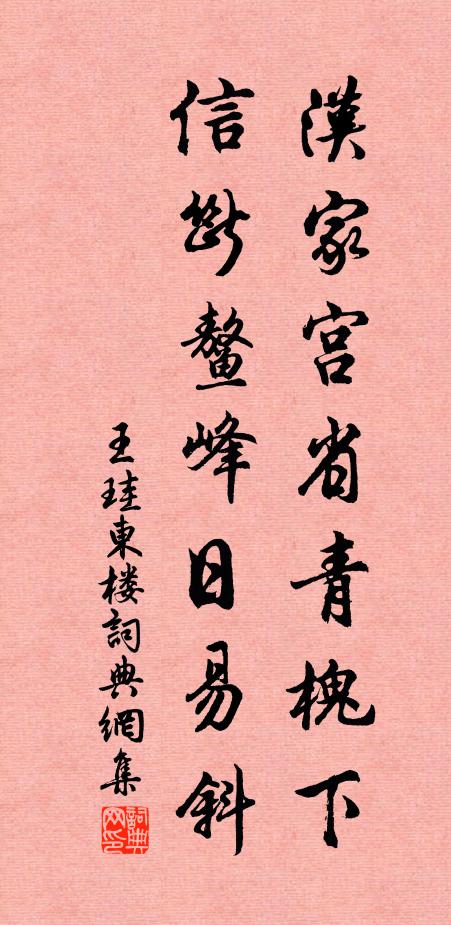 漢家宫省青槐下
信断鳌峰日易斜
王珪東楼詞典網集
詞典网印